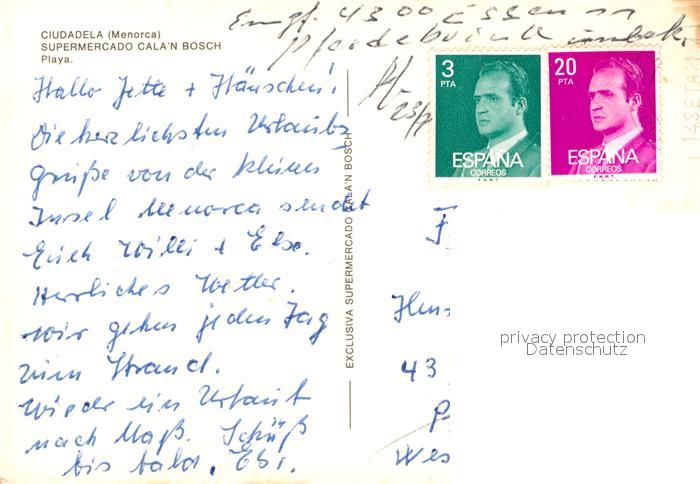 CIUDADELA (Menorca)
SUPERMERCADO CALA'N BOSCH
Playa.
Empf. 4300 Essen
Hallo Jette + Hänschen!
Die herzlichsten Urlaubs
grüße von der kleinen
Insel Menorca sendet
Euch Willi + Else.
Herrliches Wetter.
Wir gehen jeden Tag
zum Strand.
Wieder ein Urlaub
nach Maß. Tschüß
bis bald,
EXCLUSIVA SUPERMERCADO CALA'N BOSCH
3
PTA
ESPAÑA
CORREOS
F.N.M.T.
20
PTA
ESPAÑA
CORREOS
F.N.M.T.
F
43
Wes
privacy protection
Datenschutz